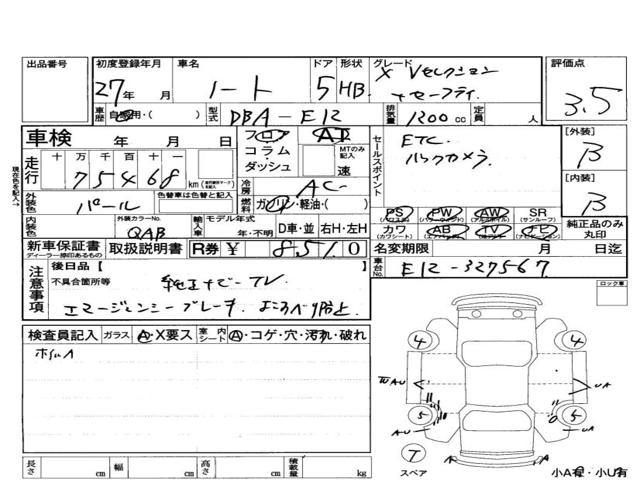 出品番号 初度登録年月 車名 ドア 形状 グレード 評価点
27年 月 ノート 5 HB X Vセレクション
+セーフティ 3.5
車歴 自家用・( ) 型式 DBA-E12 排気量 1200 cc 定員 人
車検 年 月 日 フロア AT ETC [外装]
走行 十万千百十一 コラム・ MTのみ記入 セールスポイント バックカメラ B
75468 km ダッシュ 速
現在色を記入 冷房 AC [内装]
外装色 パール 色替車は色替と記入 燃料 ガソリン・軽油・( ) B
内装色 外装カラーNo. QAB 輸入車 モデル年式 年・不明 D車・並 右H・左H
PS (パワステ) PW (パワーウィンドウ) AW (アルミホイル) SR (サンルーフ) 純正品のみ
カワ (カワシート) AB (エアーバッグ) TV (テレビ) ナビ (ナビゲーション) 丸印
新車保証書 取扱説明書 R券 ¥ 8,510 名変期限 月 日迄
ディーラー捺印あるもの
注意事項 後日品【 】 車台No. E12-327567
不具合箇所等 純正ナビTV ロック車
エマージェンシーブレーキ. よこスベリ防止
検査員記入 ガラス A・X要ス 室内シート A・コゲ・穴・汚れ・破れ
4 4
W AU UA
5 5
AU UA
T
スペア A A 小A有・小U有
長さ cm 幅 cm 高さ cm 積載量 kg